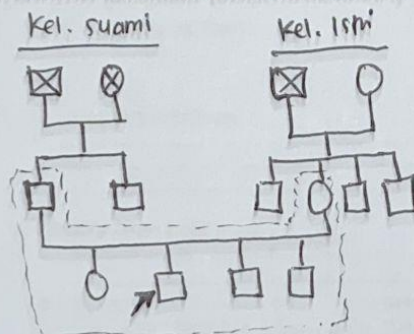 Kel. suami
Kel. Istri